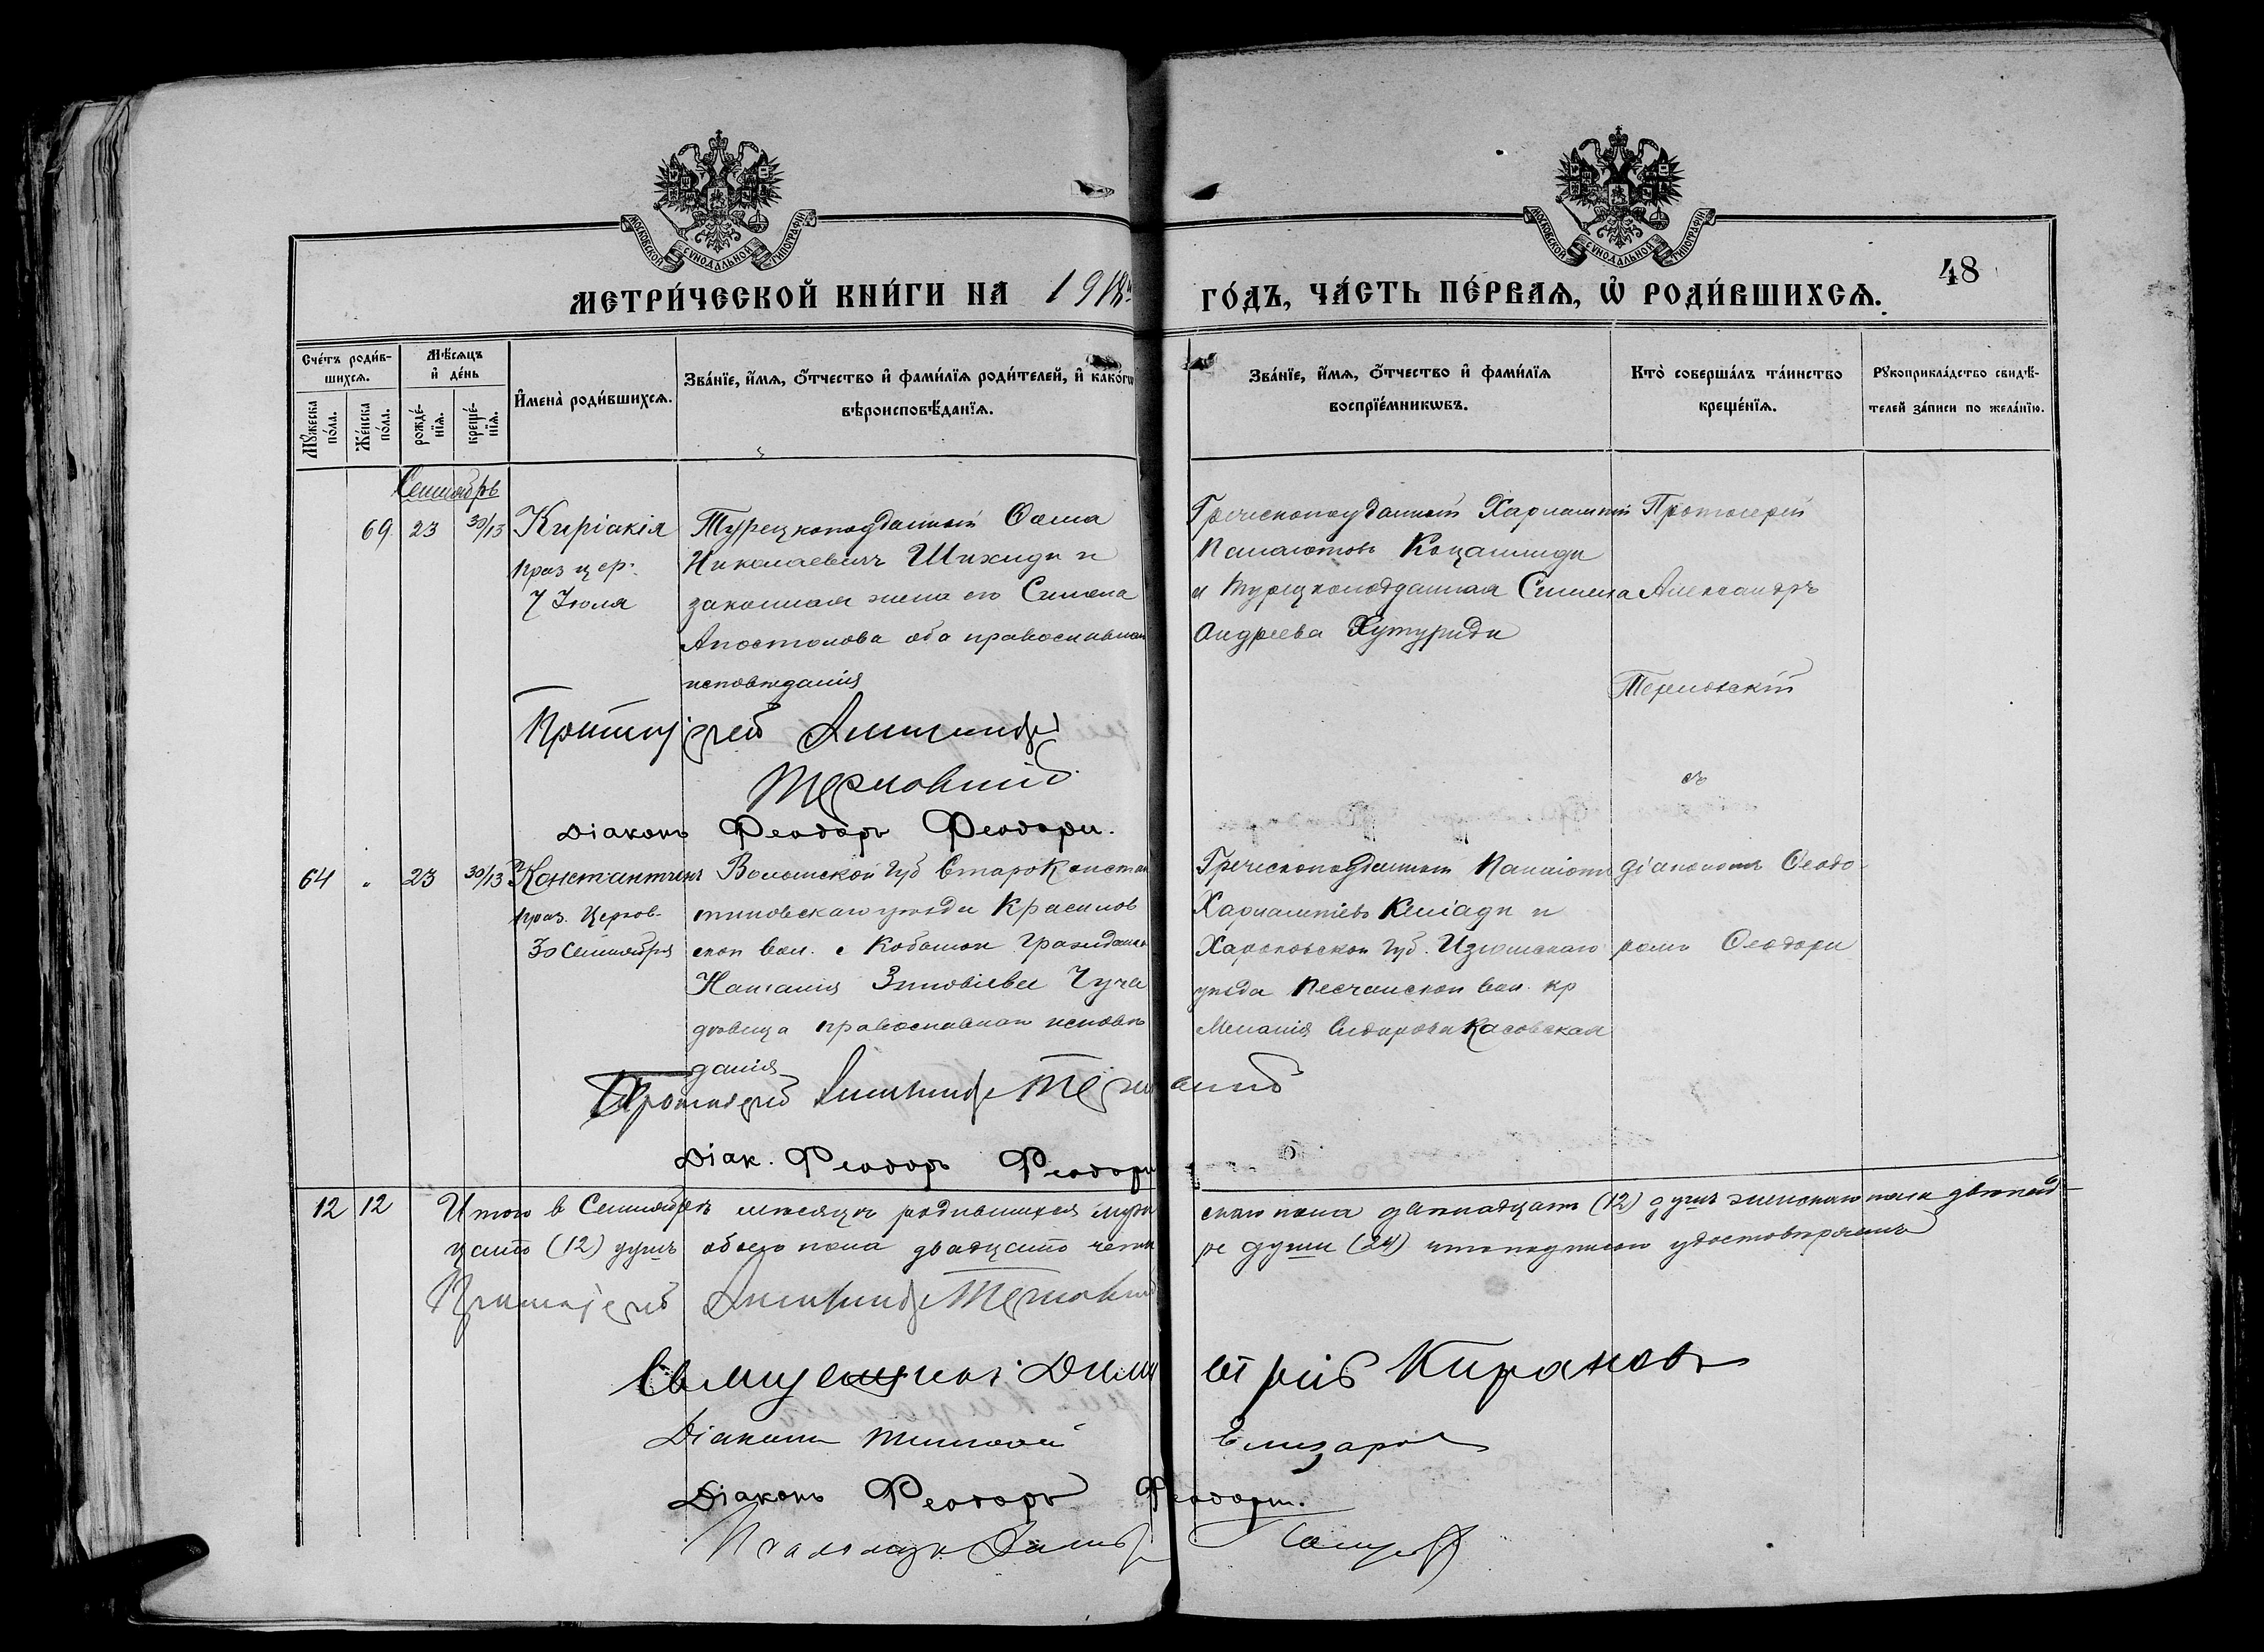 МОСКОВСКОЙ СѴНОДАЛЬНОЙ ТИПОГРАФІИ
МОСКОВСКОЙ СѴНОДАЛЬНОЙ ТИПОГРАФІИ
48
МЕТРИ́ЧЕСКОЙ КНИ́ГИ НА 1918
ГО́ДЪ, ЧА́СТЬ ПЕ́РВАѦ, Ѡ҆ РОДИ́ВШИХСѦ.
Сче́тъ роди́в-
шихсѧ.
Мꙋжеска по́ла.
Же́нска по́ла.
Мѣ́сѧцъ
и҆ де́нь
рожде́-
нїѧ.
креще́-
нїѧ.
И҆мена̀ роди́вшихсѧ.
Зва́нїе, и҆́мѧ, ѻ҆́тчество и҆ фами́лїѧ роди́телей, и҆ како́гѡ
вѣроисповѣ́данїѧ.
Зва́нїе, и҆́мѧ, ѻ҆́тчество и҆ фами́лїѧ
воспрїе́мникѡвъ.
Кто̀ соверша́лъ та́инство
креще́нїѧ.
Рꙋкоприкла́дство свидѣ́-
телей за́писи по жела́нїю.
Сентябрь
69 23 30/13 Киріакія Турецкоподданный Ѳома
Николаевичъ Шихиди и
законная жена его Симела
Апостолова оба православнаго
исповѣданія
праз цер.
7 Іюля
Греческоподданный Харлампій
Панаіотовъ Коцалиди
и турецкоподданная Симела
Андреева Хутуриди
Протоіерей
Александръ
Терновскій
съ
Протоіерей Александръ
Терновскій
Діаконъ Феодоръ Феодори.
64 23 30/13 Константинъ Волынской губ Староконстан
тиновскаго уѣзда Красилов
ской вол. с Кобылы гражданка
Наталия Зиновіева Чуча
дѣвица православнаго исповѣ
данія
праз. Церков.
30 Сентября
Греческоподданный Панаіоти
Харлампіевъ Кеміади и
Харьковской губ. Изюмскаго
уѣзда Песчанской вол. кр
Меланія Сидорова Касовская
діакономъ Ѳеодо
ромъ Ѳеодори
Протоіерей Александръ Терновскій
Діак. Феодоръ Феодори
12 12 Итого в Сентябрѣ мѣсяцѣ родившихся муж
скаго пола двѣнадцать (12) душъ женскаго пола двѣнад
цать (12) душъ обоего пола двадцать четы
ре души (24) что подписью удостовѣряемъ
Протоіерей Александръ Терновскій
Священникъ Димитрій Кирановъ
Діаконъ Тимофей Елизаров
Діаконъ Феодоръ Феодори.
Псаломщик